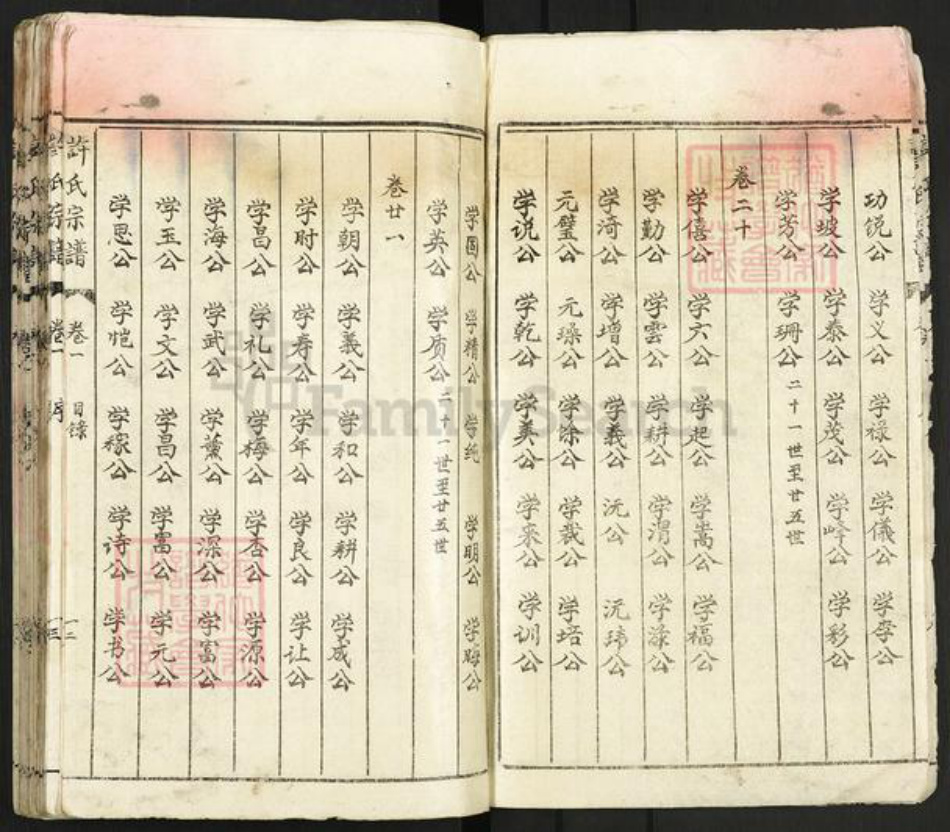 功锐公 学义公 学禄公 学儀公 学李公
学坡公 学泰公 学茂公 学峰公 学彩公
学芳公 学珊公 二十一世至廿五世
卷二十
学僖公 学六公 学起公 学嵩公 学福公
学勤公 学雲公 学耕公 学渭公 学渌公
学漪公 学增公 学義公 沅公 沅玮公
元璧公 元璪公 学徐公 学裁公 学培公
学说公 学乾公 学美公 学来公 学训公
学圆公 学精公 学纯 学明公 学晦公
学英公 学质公 二十一世至廿五世
卷廿一
学朝公 学義公 学和公 学耕公 学成公
学时公 学寿公 学年公 学良公 学让公
学昌公 学礼公 学梅公 学杏公 学源公
学海公 学武公 学薰公 学深公 学富公
学玉公 学文公 学昌公 学富公 学元公
学思公 学恺公 学稼公 学诗公 学书公
許氏宗譜 卷一 目録 十二
FamilySearch